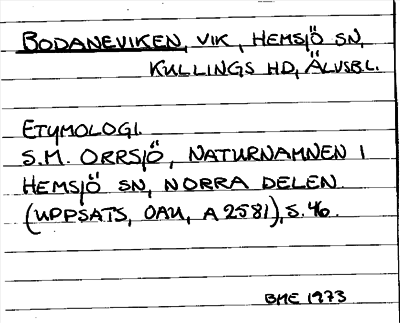 BODANEVIKEN, VIK, HEMSJÖ SN,
KULLINGS HD, ÄLVSBL.
ETYMOLOGI.
S.M. ORRSJÖ, NATURNAMNEN I
HEMSJÖ SN, NORRA DELEN.
(UPPSATS, OAU, A 2581), S. 46.
BME 1973